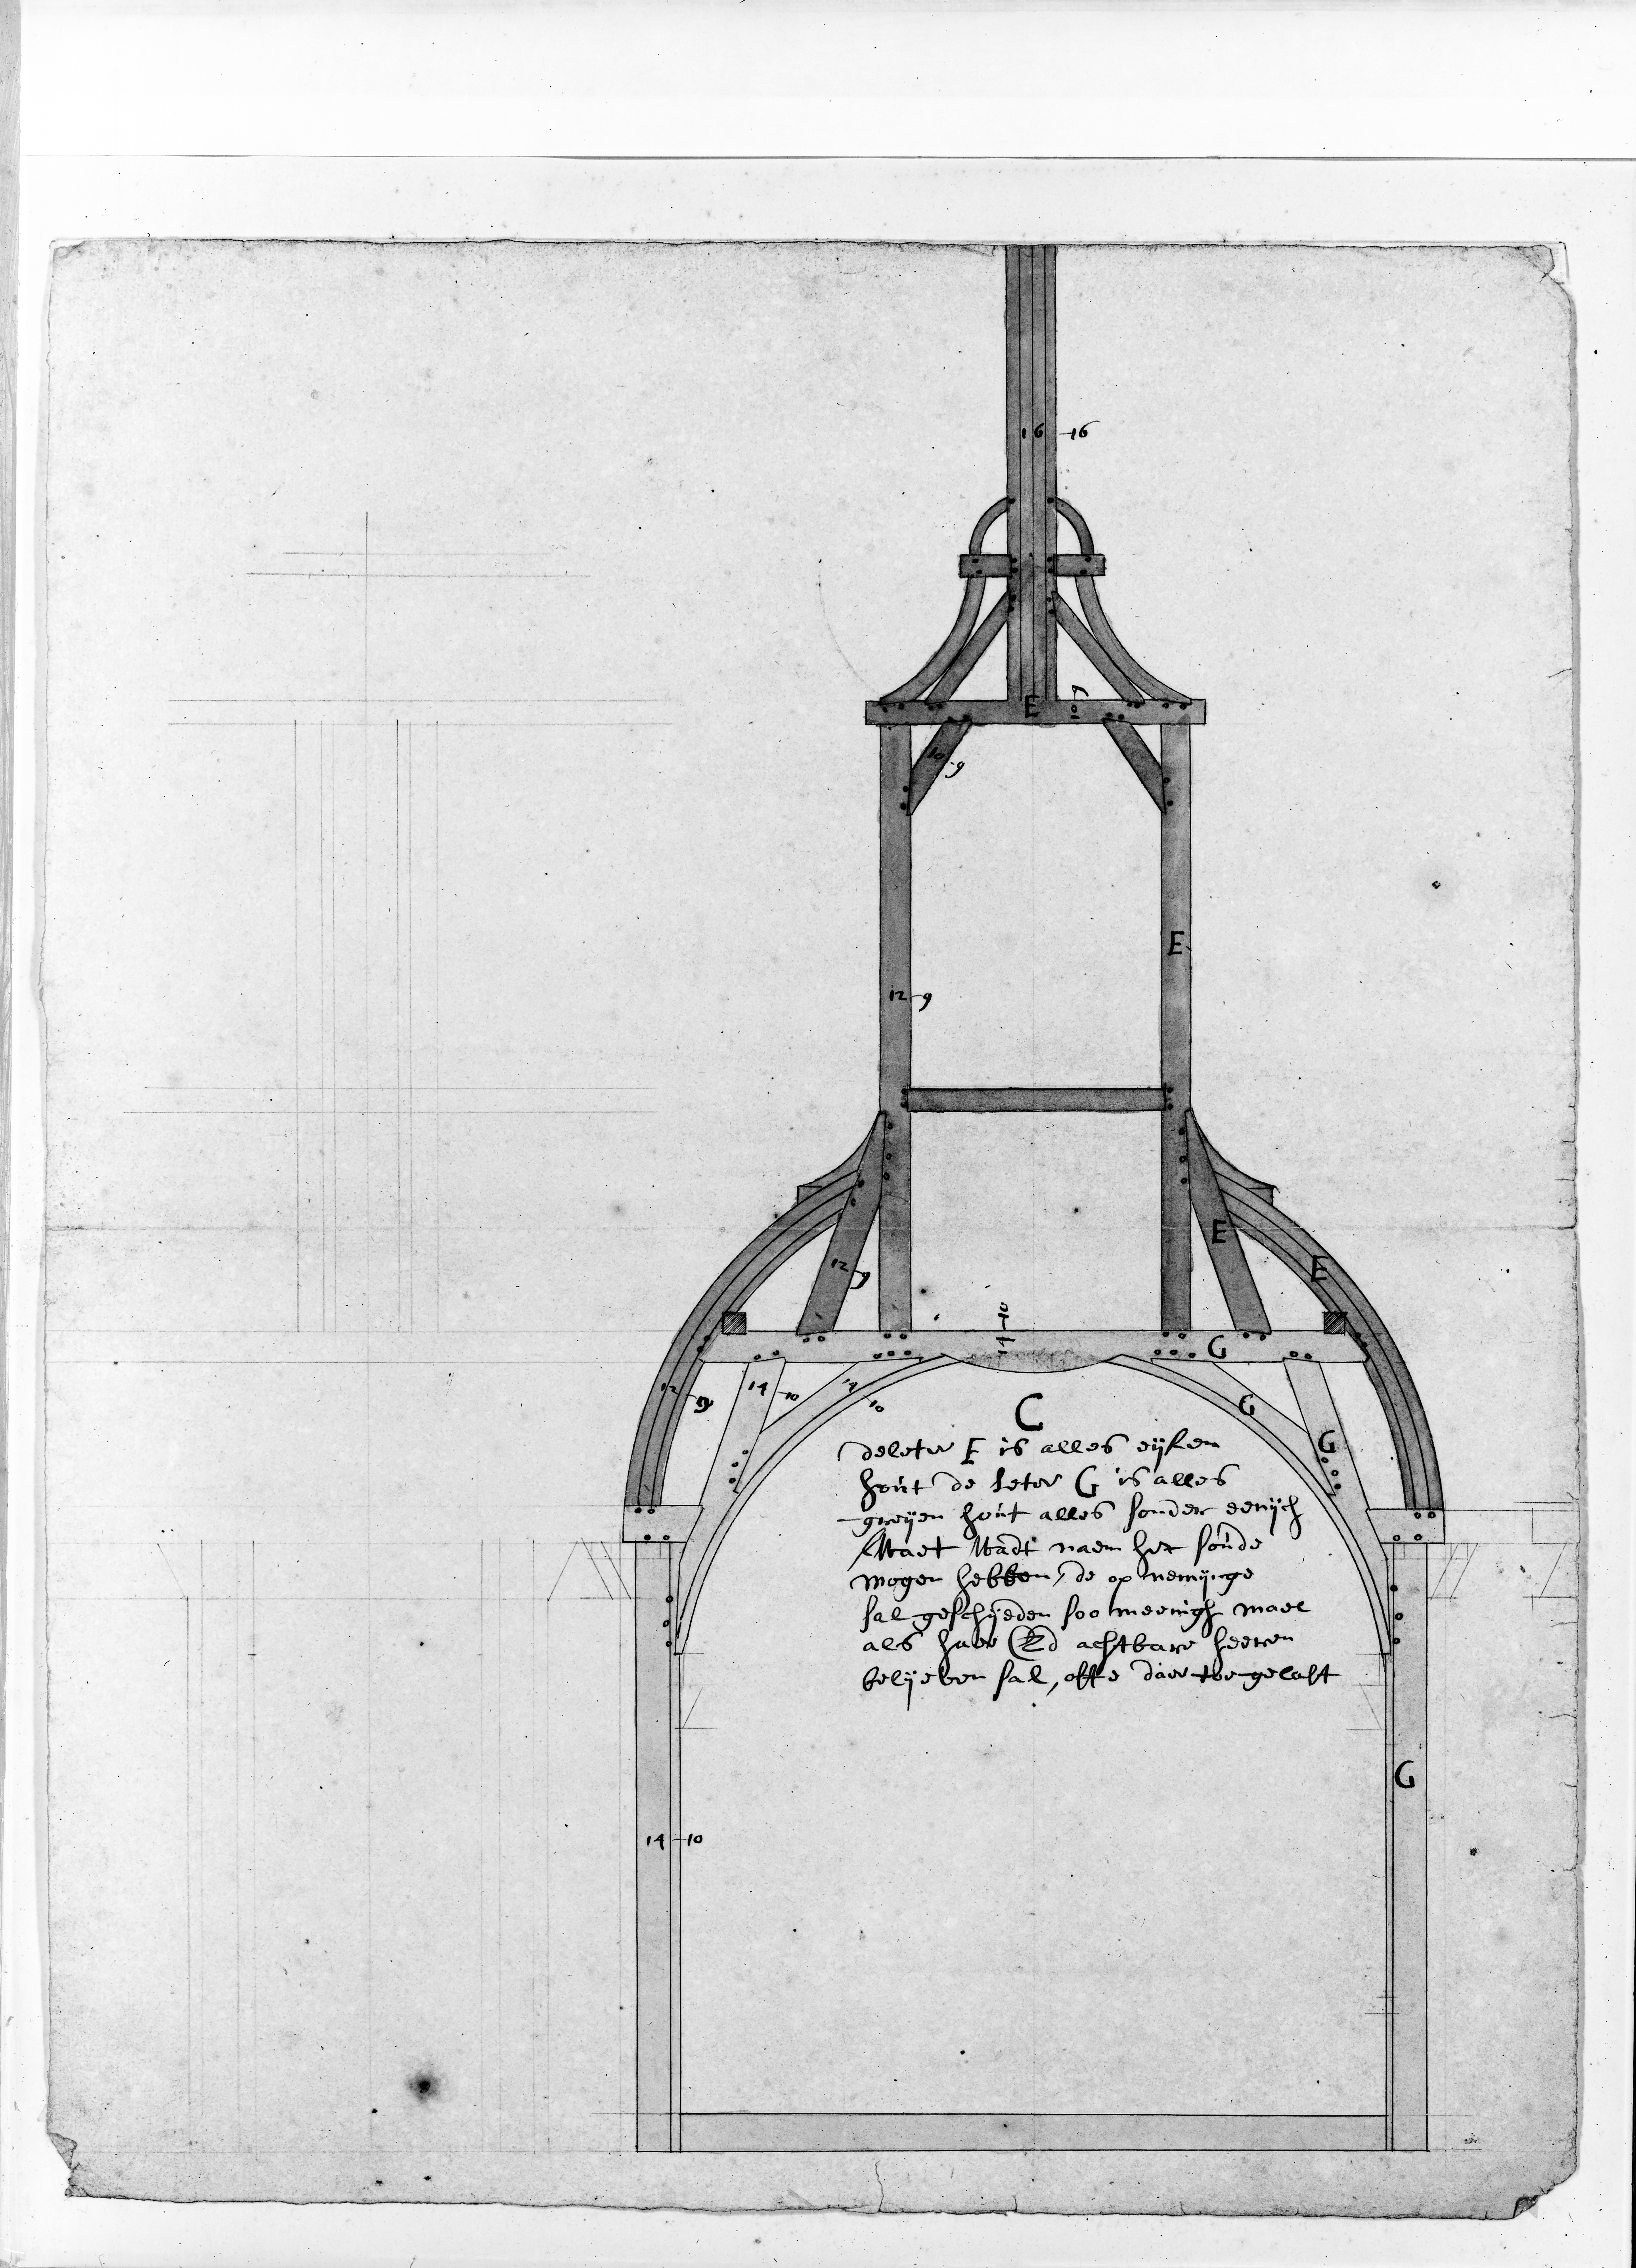 16 16
E 9 10
10 9
E
12 9
E
E
12 9
10 14
G
12 9
14 10
14 10
G
G
C
de leter E is alles eijken
hout de leter G is alles
greijen hout alles sonder eenijch
naem het soude
mogen hebben, de op nemijnge
sal geschijeden soo meenigh mael
als haer Ed achtbare heeren
belijeben sal, ofte daer toe gelast
G
14 10